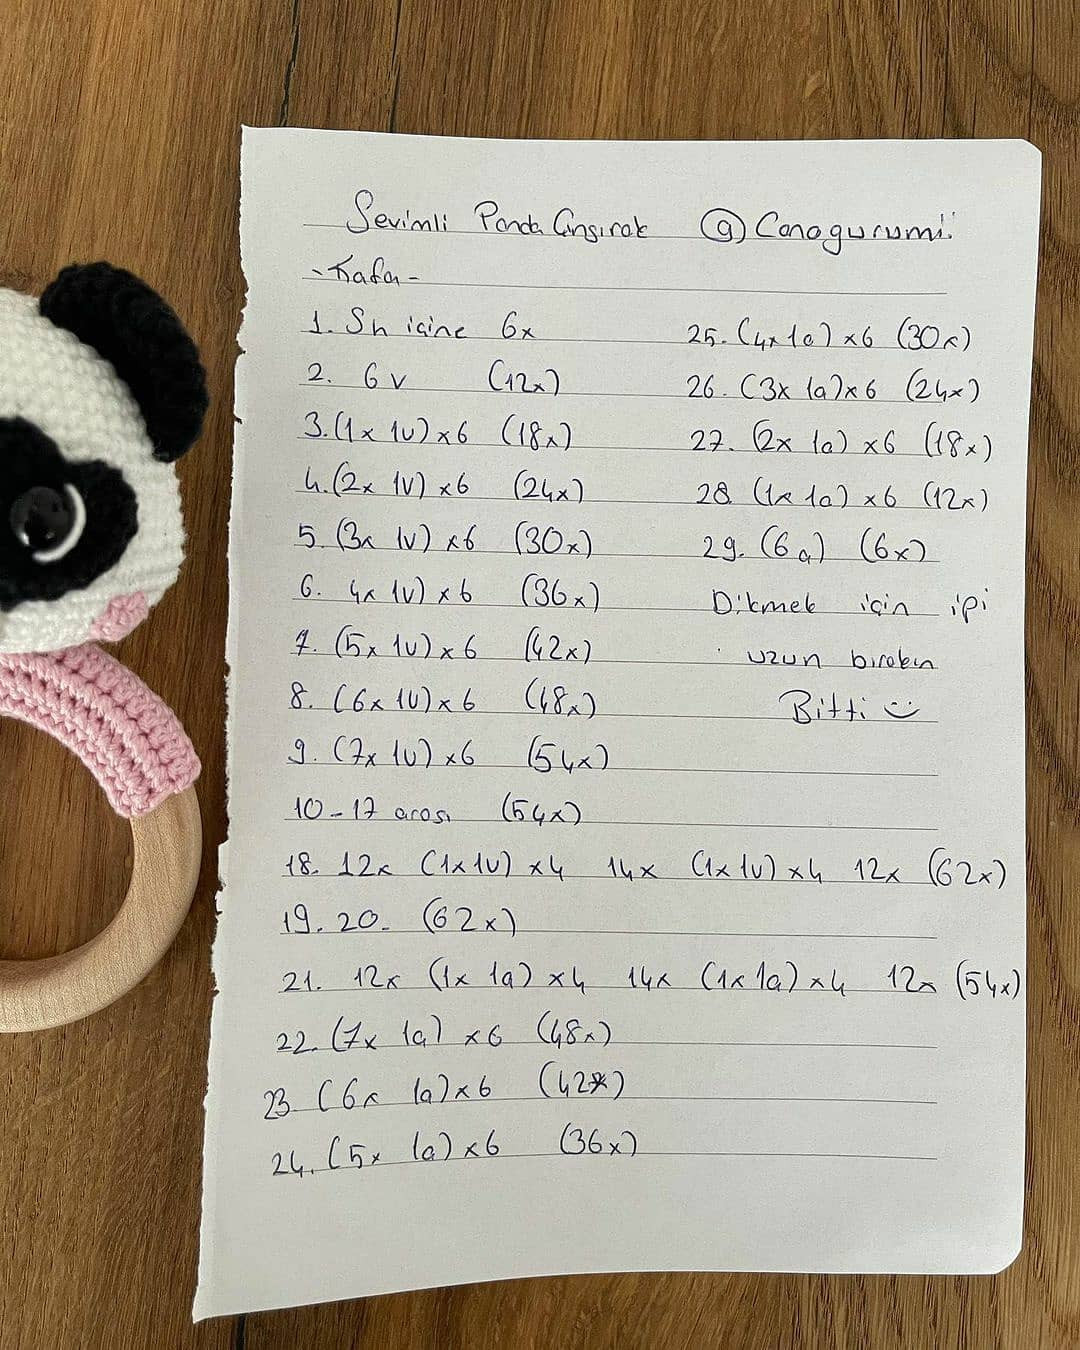 Sevimli Panda Çıngırak @Canagurumi
-Kafa-
1. Sh içine 6x
2. 6v (12x)
3. (1x 1v) x6 (18x)
4. (2x 1v) x6 (24x)
5. (3x 1v) x6 (30x)
6. 4x 1v) x6 (36x)
7. (5x 1v) x6 (42x)
8. (6x 1v) x6 (48x)
9. (7x 1v) x6 (54x)
10-17 arası (54x)
18. 12x (1x1v) x4 14x (1x1v) x4 12x (62x)
19. 20. (62x)
21. 12x (1x 1a) x4 14x (1x 1a) x4 12x (54x)
22. (7x 1a) x6 (48x)
23. (6x 1a) x6 (42x)
24. (5x 1a) x6 (36x)
25. (4x 1a) x6 (30x)
26. (3x 1a) x6 (24x)
27. (2x 1a) x6 (18x)
28 (1x 1a) x6 (12x)
29. (6a) (6x)
Dikmek için ipi
uzun bırakın
Bitti